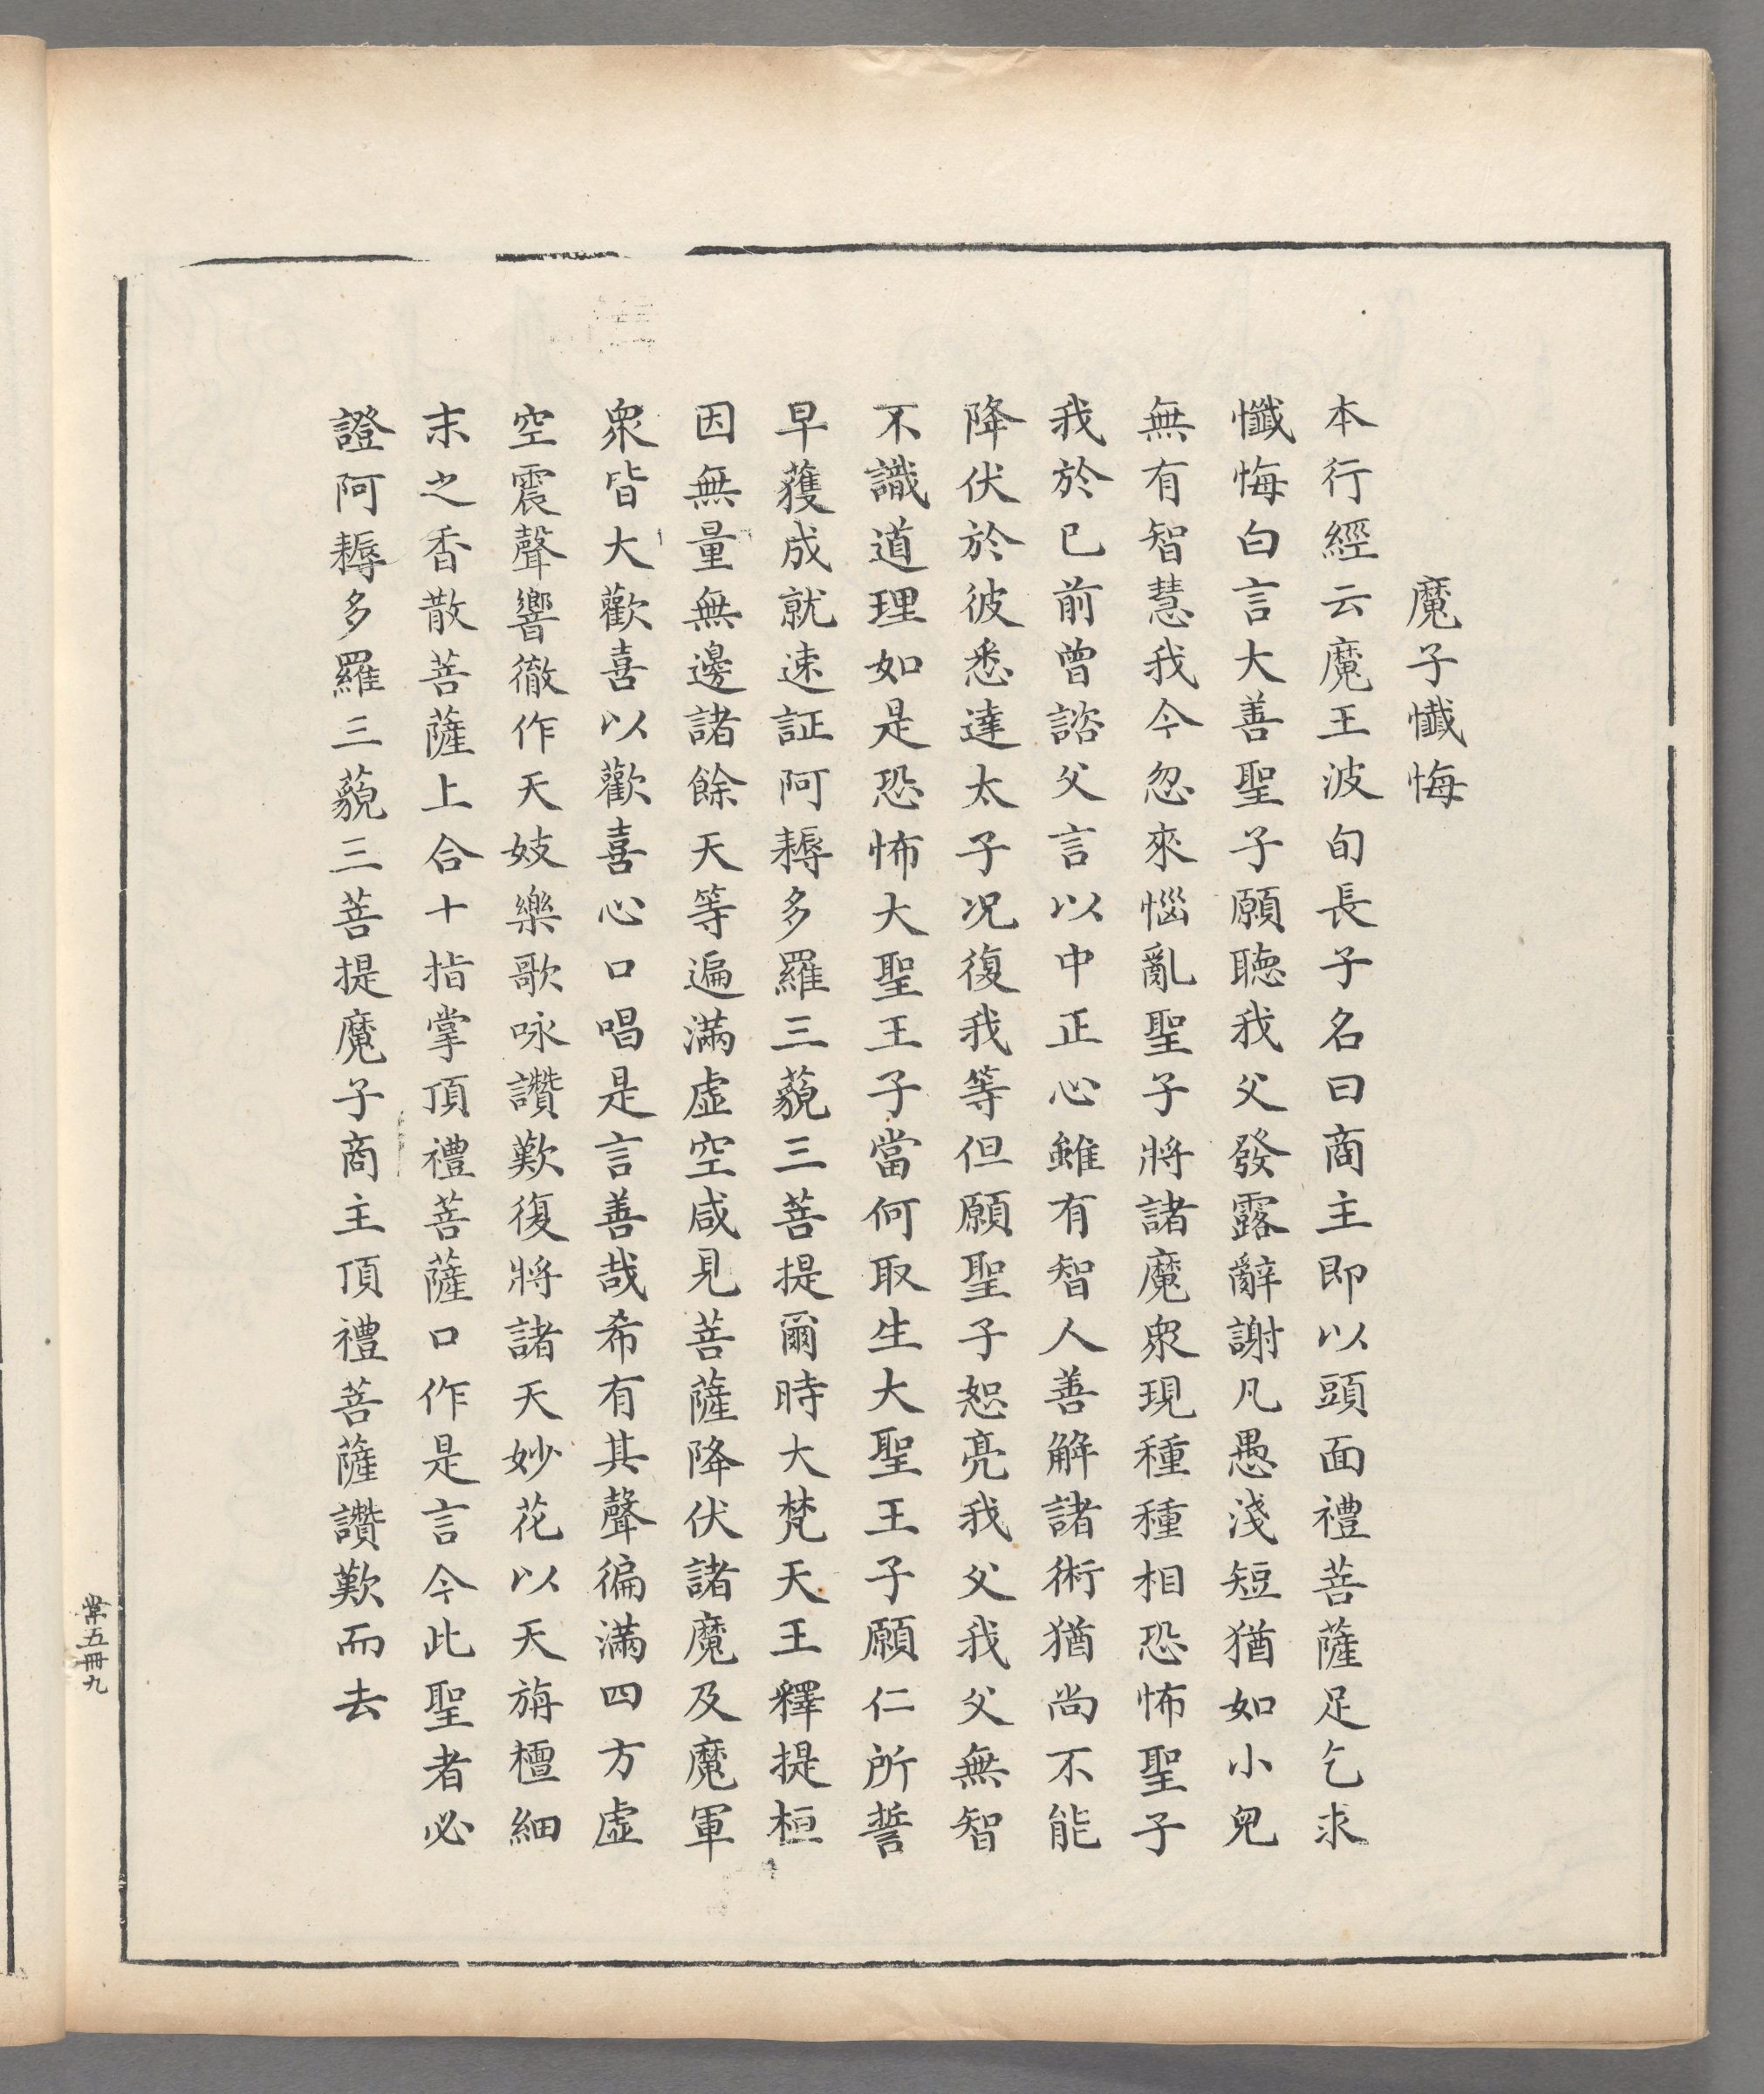 魔子懺悔
本行經云魔王波旬長子名曰商主即以頭面禮菩薩足乞求
懺悔白言大善聖子願聽我父發露辭謝凡愚淺短猶如小兒
無有智慧我今忽來惱亂聖子將諸魔衆現種種相恐怖聖子
我於已前曾諮父言以中正心雖有智人善解諸術猶尚不能
降伏於彼悉達太子况復我等但願聖子恕亮我父我父無智
不識道理如是恐怖大聖王子當何取生大聖王子願仁所誓
早獲成就速証阿耨多羅三藐三菩提爾時大梵天王釋提桓
因無量無邊諸餘天等遍滿虛空咸見菩薩降伏諸魔及魔軍
衆皆大歡喜以歡喜心口唱是言善哉希有其聲徧滿四方虛
空震聲響徹作天妓樂歌咏讚歎復將諸天妙花以天旃檀細
末之香散菩薩上合十指掌頂禮菩薩口作是言今此聖者必
證阿耨多羅三藐三菩提魔子商主頂禮菩薩讚歎而去
常五冊九